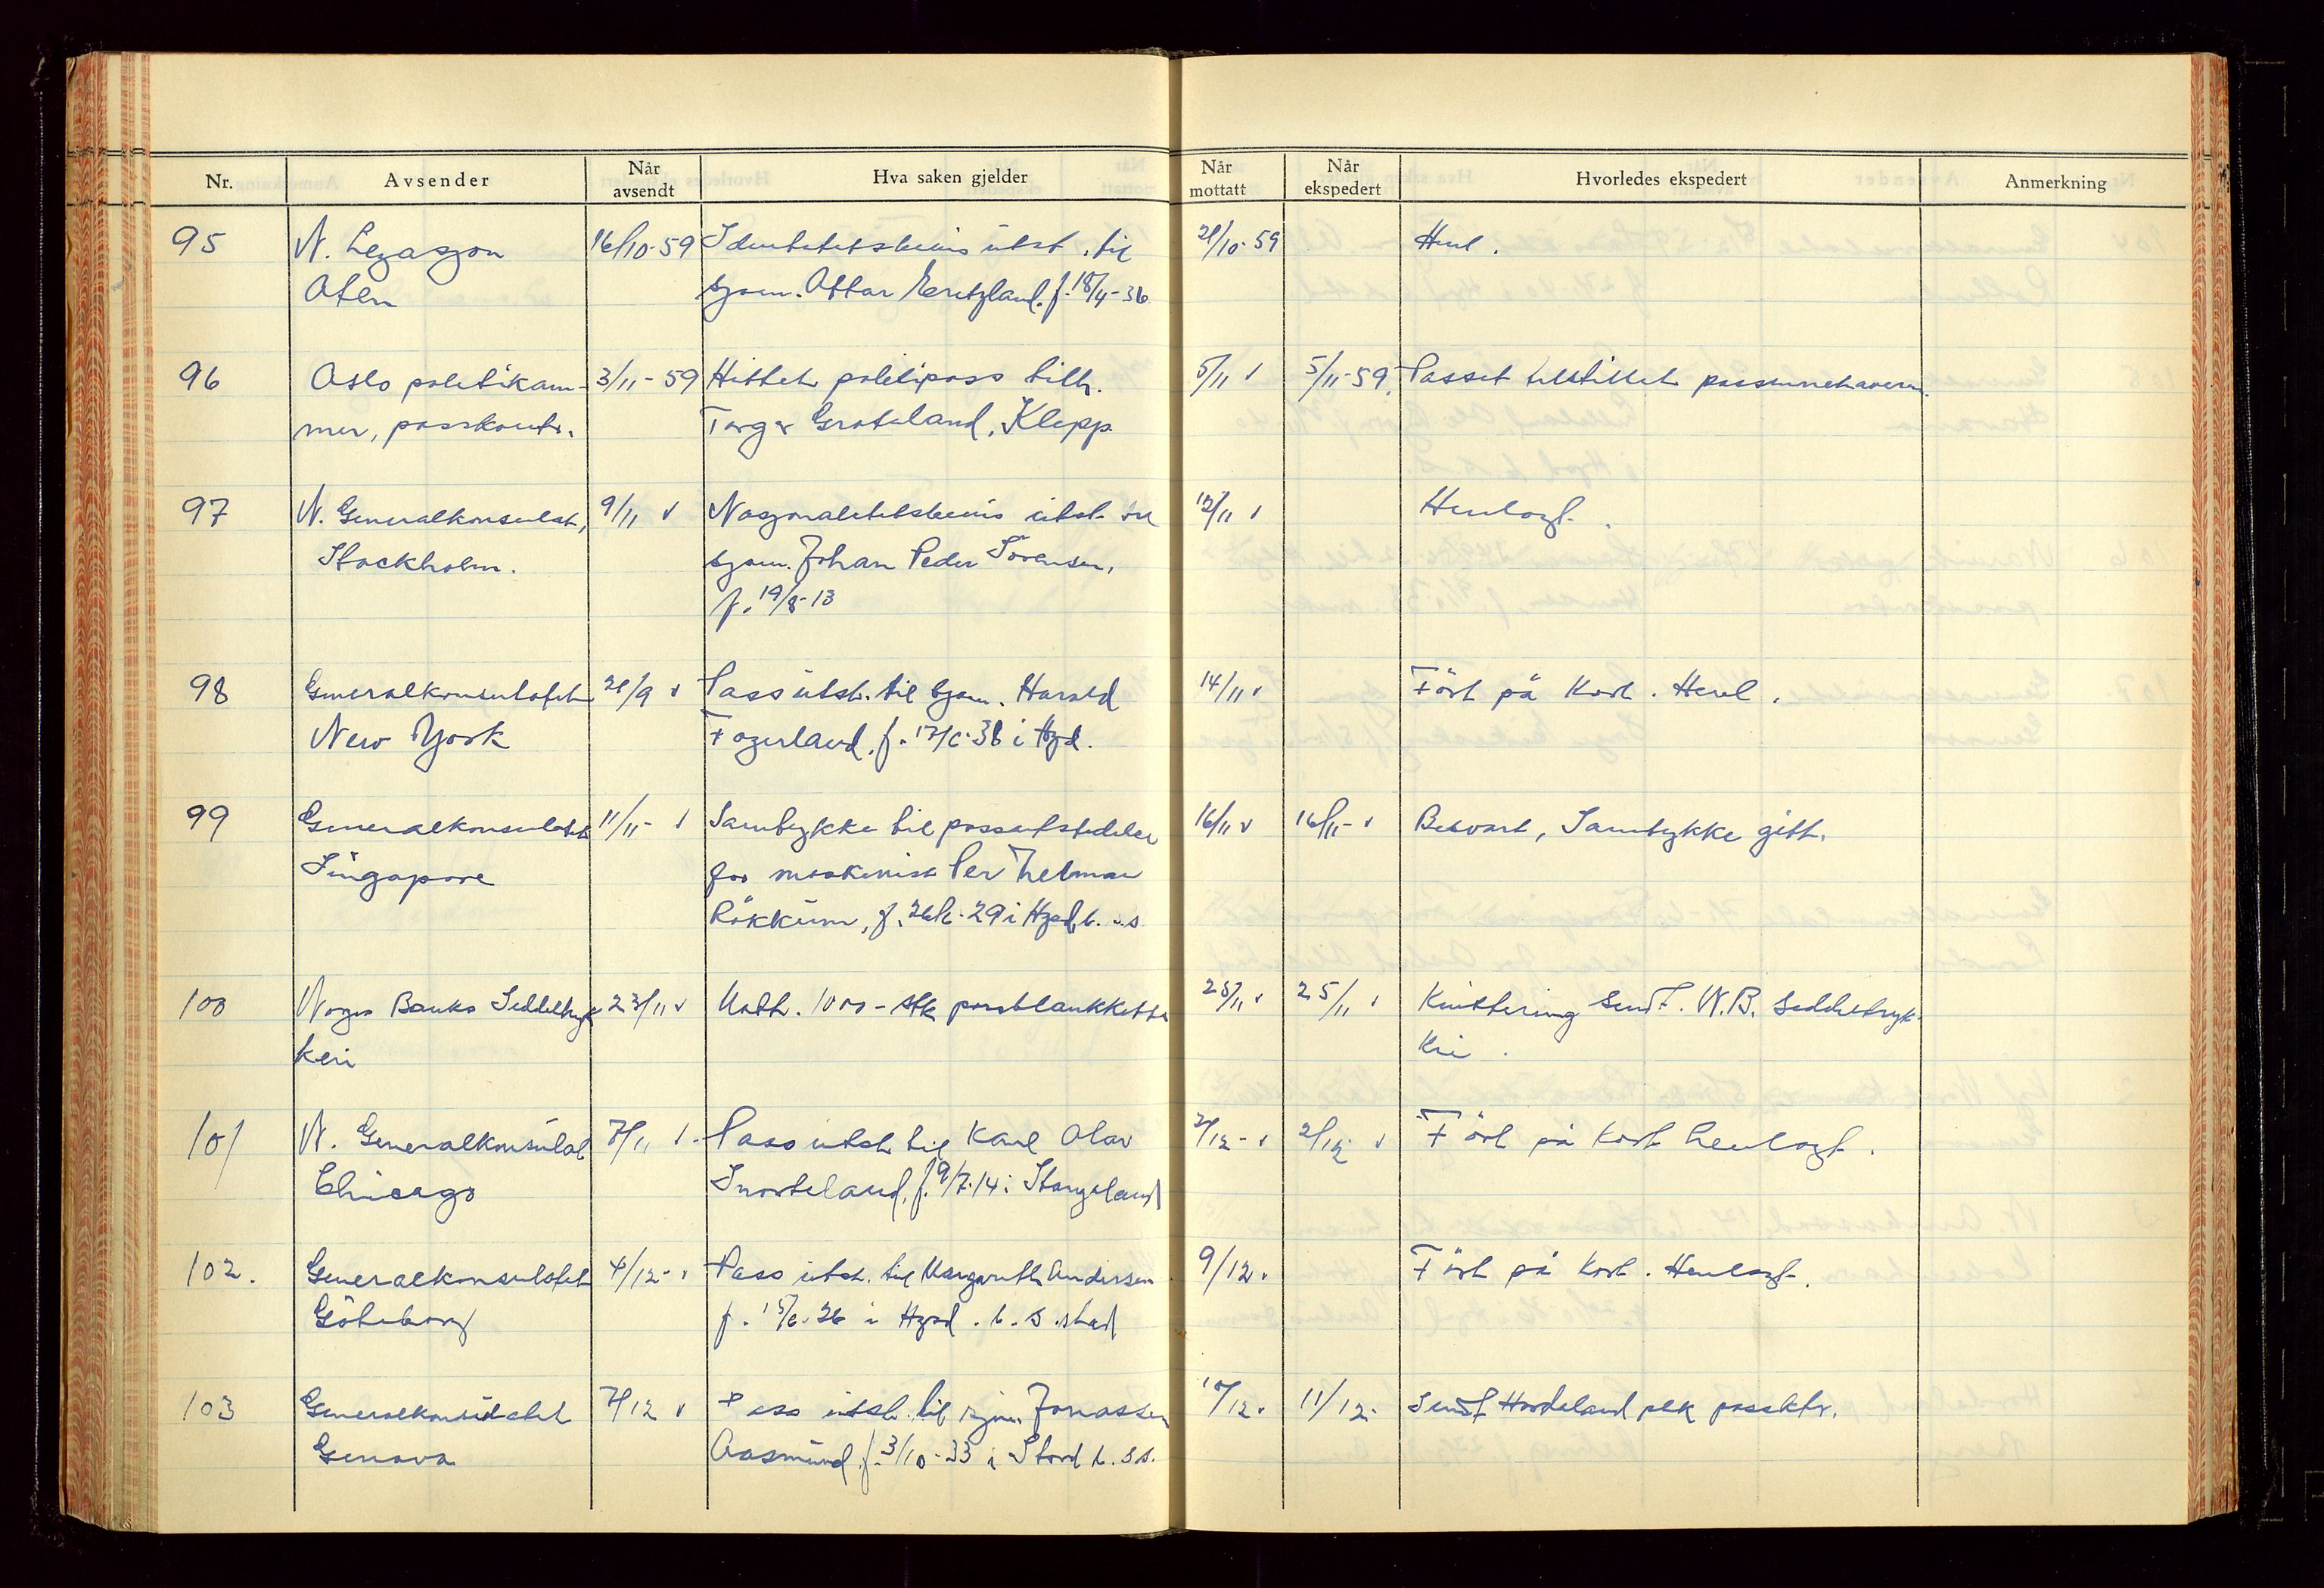 Nr. Avsender Når avsendt Hva saken gjelder Når mottatt Når ekspedert Hvorledes ekspedert Anmerkning
95 N. Legasjon 16/10-59 Identitetsbevis utst. til 21/10-59 Henl.
Aten sjøm. Ottar f. 18/4-36
96 Oslo politikam- 3/11-59 Hittet politipass tilh. 5/11 v 5/11-59 Passet tilstillet passinnehaveren.
mer, passkontr. Torger Grateland, Klepp
97 N. Generalkonsulat, 9/11 v Nasjonalitetsbevis utst. til 12/11 v Henlagt.
Stockholm. sjøm. Johan Peder Sörensen,
f. 19/8-13
98 Generalkonsulatet 21/9 v Pass utst. til sjøm. Harald 14/11 v Fört på Kort. Henl.
New York Fagerland, f. 17/6-36 i Hgsd.
99 Generalkonsulatet 11/11- v Samtykke til passutstedelse 16/11 v 16/11- v Besvart, Samtykke gitt.
Singapore for maskinist Per Thelman
Rökkum, f. 29 i Hgsd, b. s.s
100 Norges Banks Seddeltryk 23/11 v Mott. 1000- stk passblanketter 25/11 v 25/11 v Kvittering sendt. N.B. Seddeltryk-
keri keri.
101 N. Generalkonsulat 7/11 v. Pass utst. til Karl Olav 2/12- v 2/12 v Fört på kort henlagt.
Chicago Snorteland, f. 9/7-14 i Stangaland
102. Generalkonsulatet 4/12- v Pass utst. til Margareth Andersen 9/12 v Fört på Kort. Henlagt.
Göteborg f. 15/6-26 i Hgsd. b. s. sted
103 Generalkonsulatet 7/12 v Pass utst. til sjøm. Jonassen 10/12 v 11/12- Sendt Hordaland plk passktr.
Genova Aasmund, f. 3/10-33 i Stord b. s.s.